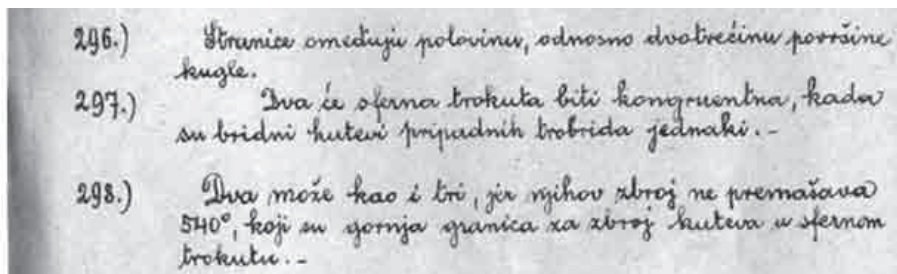 296.) Stranice omeđuju polovinu, odnosno dvotrećinu površine
kugle.
297.) Dva će sferna trokuta biti kongruentna, kada
su bridni kutevi pripadnih trobrida jednaki. -
298.) Dva može kao i tri, jer njihov zbroj ne premašava
540°, koji su gornja granica za zbroj kuteva u sfernom
trokutu. -